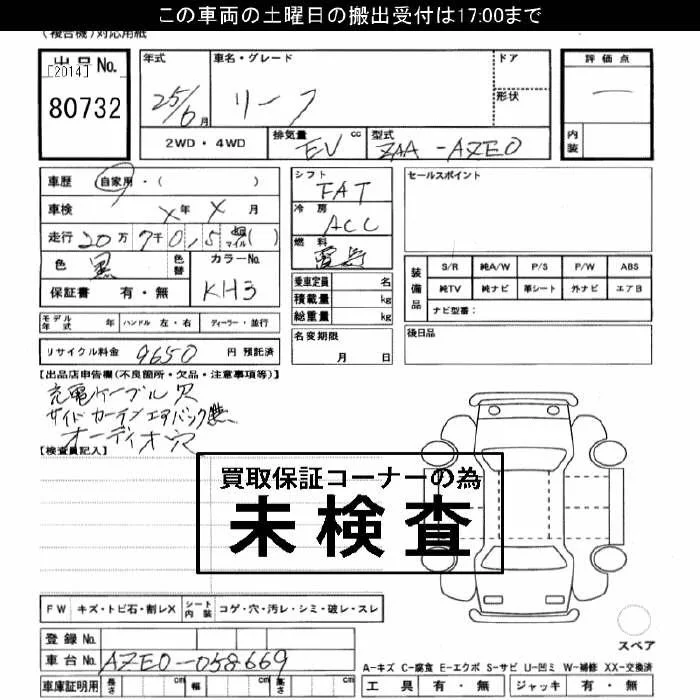 この車両の土曜日の搬出受付は17:00まで
(複合機)対応用紙
出品No.
[2014]
80732
年式
25/6月
車名・グレード
リーフ
ドア
形状
評価点
一
内装
2WD・4WD
排気量
EV cc
型式
ZAA-AZE0
車歴 自家用・( )
車検 X年 X月
走行 20万7千0,5 マイル( )
色 黒
色替
カラーNo.
KH3
保証書 有・無
シフト
FAT
冷房
ACC
燃料
電気
乗車定員 名
積載量 kg
総重量 kg
セールスポイント
装備品
S/R 純A/W P/S P/W ABS
純TV 純ナビ 革シート 外ナビ エアB
ナビ型番:
モデル年式 年 ハンドル 左・右 ディーラー・並行
リサイクル料金 9650 円 預託済
名変期限
月 日
後日品
【出品店申告欄(不良箇所・欠品・注意事項等)】
充電ケーブル欠
サイドカーテンエアバック無
オーディオ欠
【検査員記入】
買取保証コーナーの為
未検査
FW キズ・トビ石・割レX シート内装 コゲ・穴・汚レ・シミ・破レ・スレ
登録No.
車台No. AZE0-058669
車庫証明用 長さ cm 幅 cm 高さ cm
スペア
A-キズ C-腐食 E-エクボ S-サビ U-凹ミ W-補修 XX-交換済
工具 有・無 ジャッキ 有・無